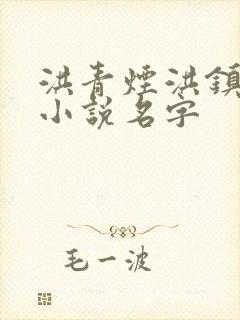 洪青煙洪鎮
小說名字
毛一波